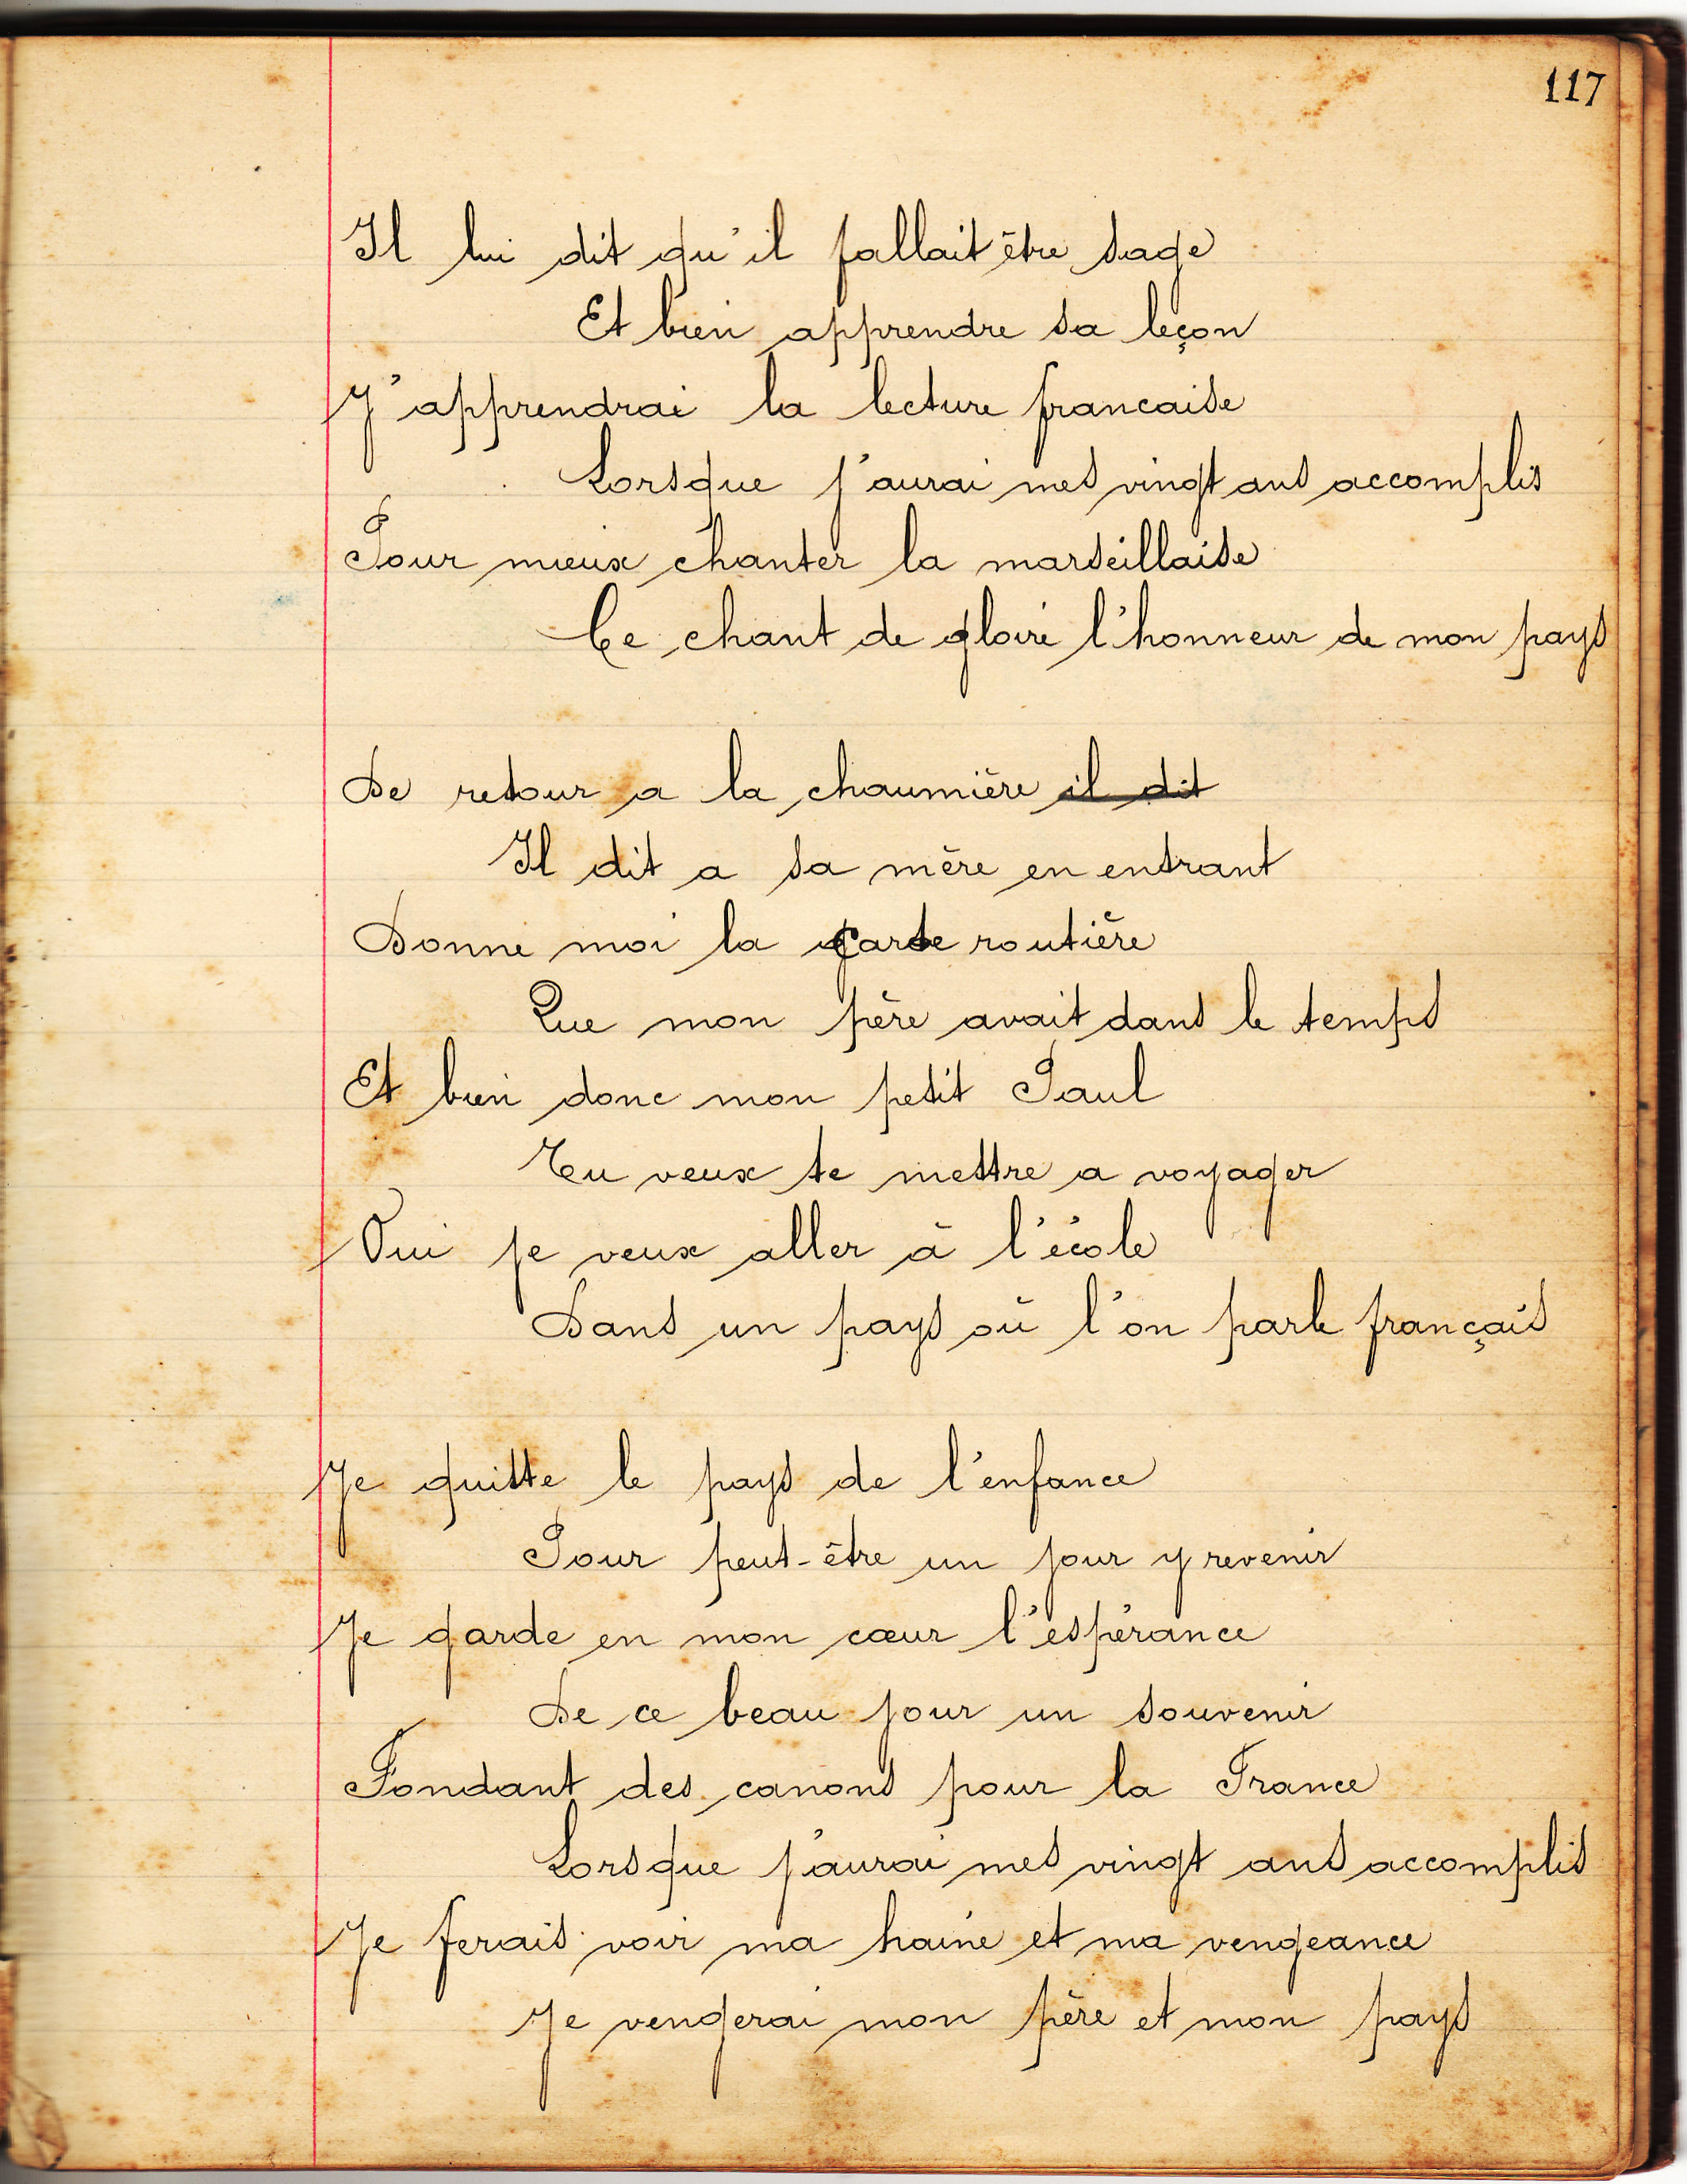 117
Il lui dit qu'il fallait être sage
Et bien apprendre sa leçon
J'apprendrai la lecture francaise
Lorsque j'aurai mes vingt ans accomplis
Pour mieux chanter la marseillaise
Ce chant de gloire l'honneur de mon pays
De retour a la chaumière il dit
Il dit a sa mère en entrant
Donne moi la carte routière
Que mon père avait dans le temps
Et bien donc mon petit Paul
Tu veux te mettre a voyager
Oui je veux aller à l'école
Dans un pays où l'on parle français
Je quitte le pays de l'enfance
Pour peut-être un jour y revenir
Je garde en mon cœur l'espérance
De ce beau jour un souvenir
Fondant des canons pour la France
Lorsque j'aurai mes vingt ans accomplis
Je ferais voir ma haine et ma vengeance
Je vengerai mon père et mon pays